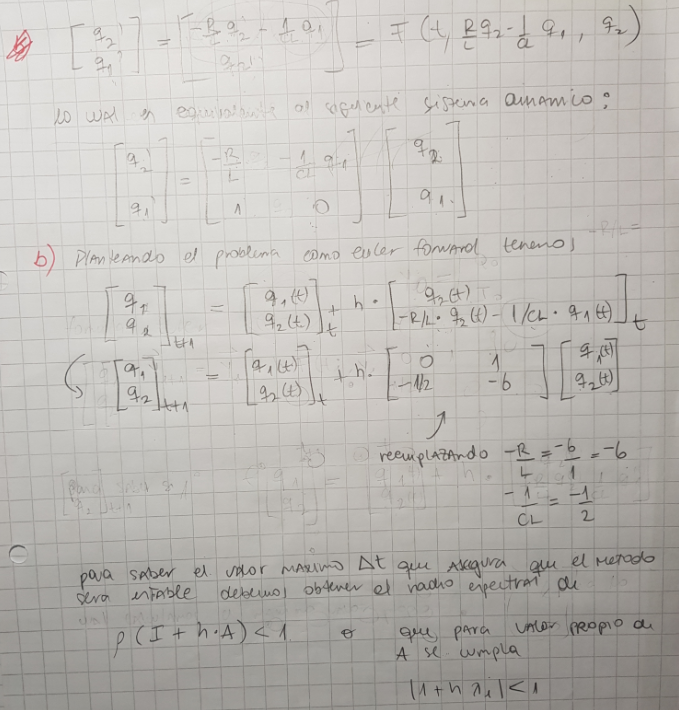 [q2' q1'] = [-R/L q2 - 1/CL q1 q2] = F(t, R/L q2 - 1/CL q1, q2)
lo cual es equivalente al siguiente sistema dinamico:
[q2' q1'] = [-R/L -1/CL q1 1 0] [q2 q1]
b) Planteando el problema como euler forward, tenemos
[q1 q2]t+1 = [q1(t) q2(t)]t + h · [q2(t) -R/L · q2(t) - 1/CL · q1(t)]t
[q1 q2]t+1 = [q1(t) q2(t)]t + h · [0 1 -1/2 -6] [q1(t) q2(t)]
reemplazando -R/L = -6/1 = -6
-1/CL = -1/2
para saber el valor maximo Δt que asegura que el metodo
sera estable debemos obtener el radio espectral de
ρ(I + h·A) < 1 o que, para valor propio de
A se cumpla
|1 + h λi| < 1